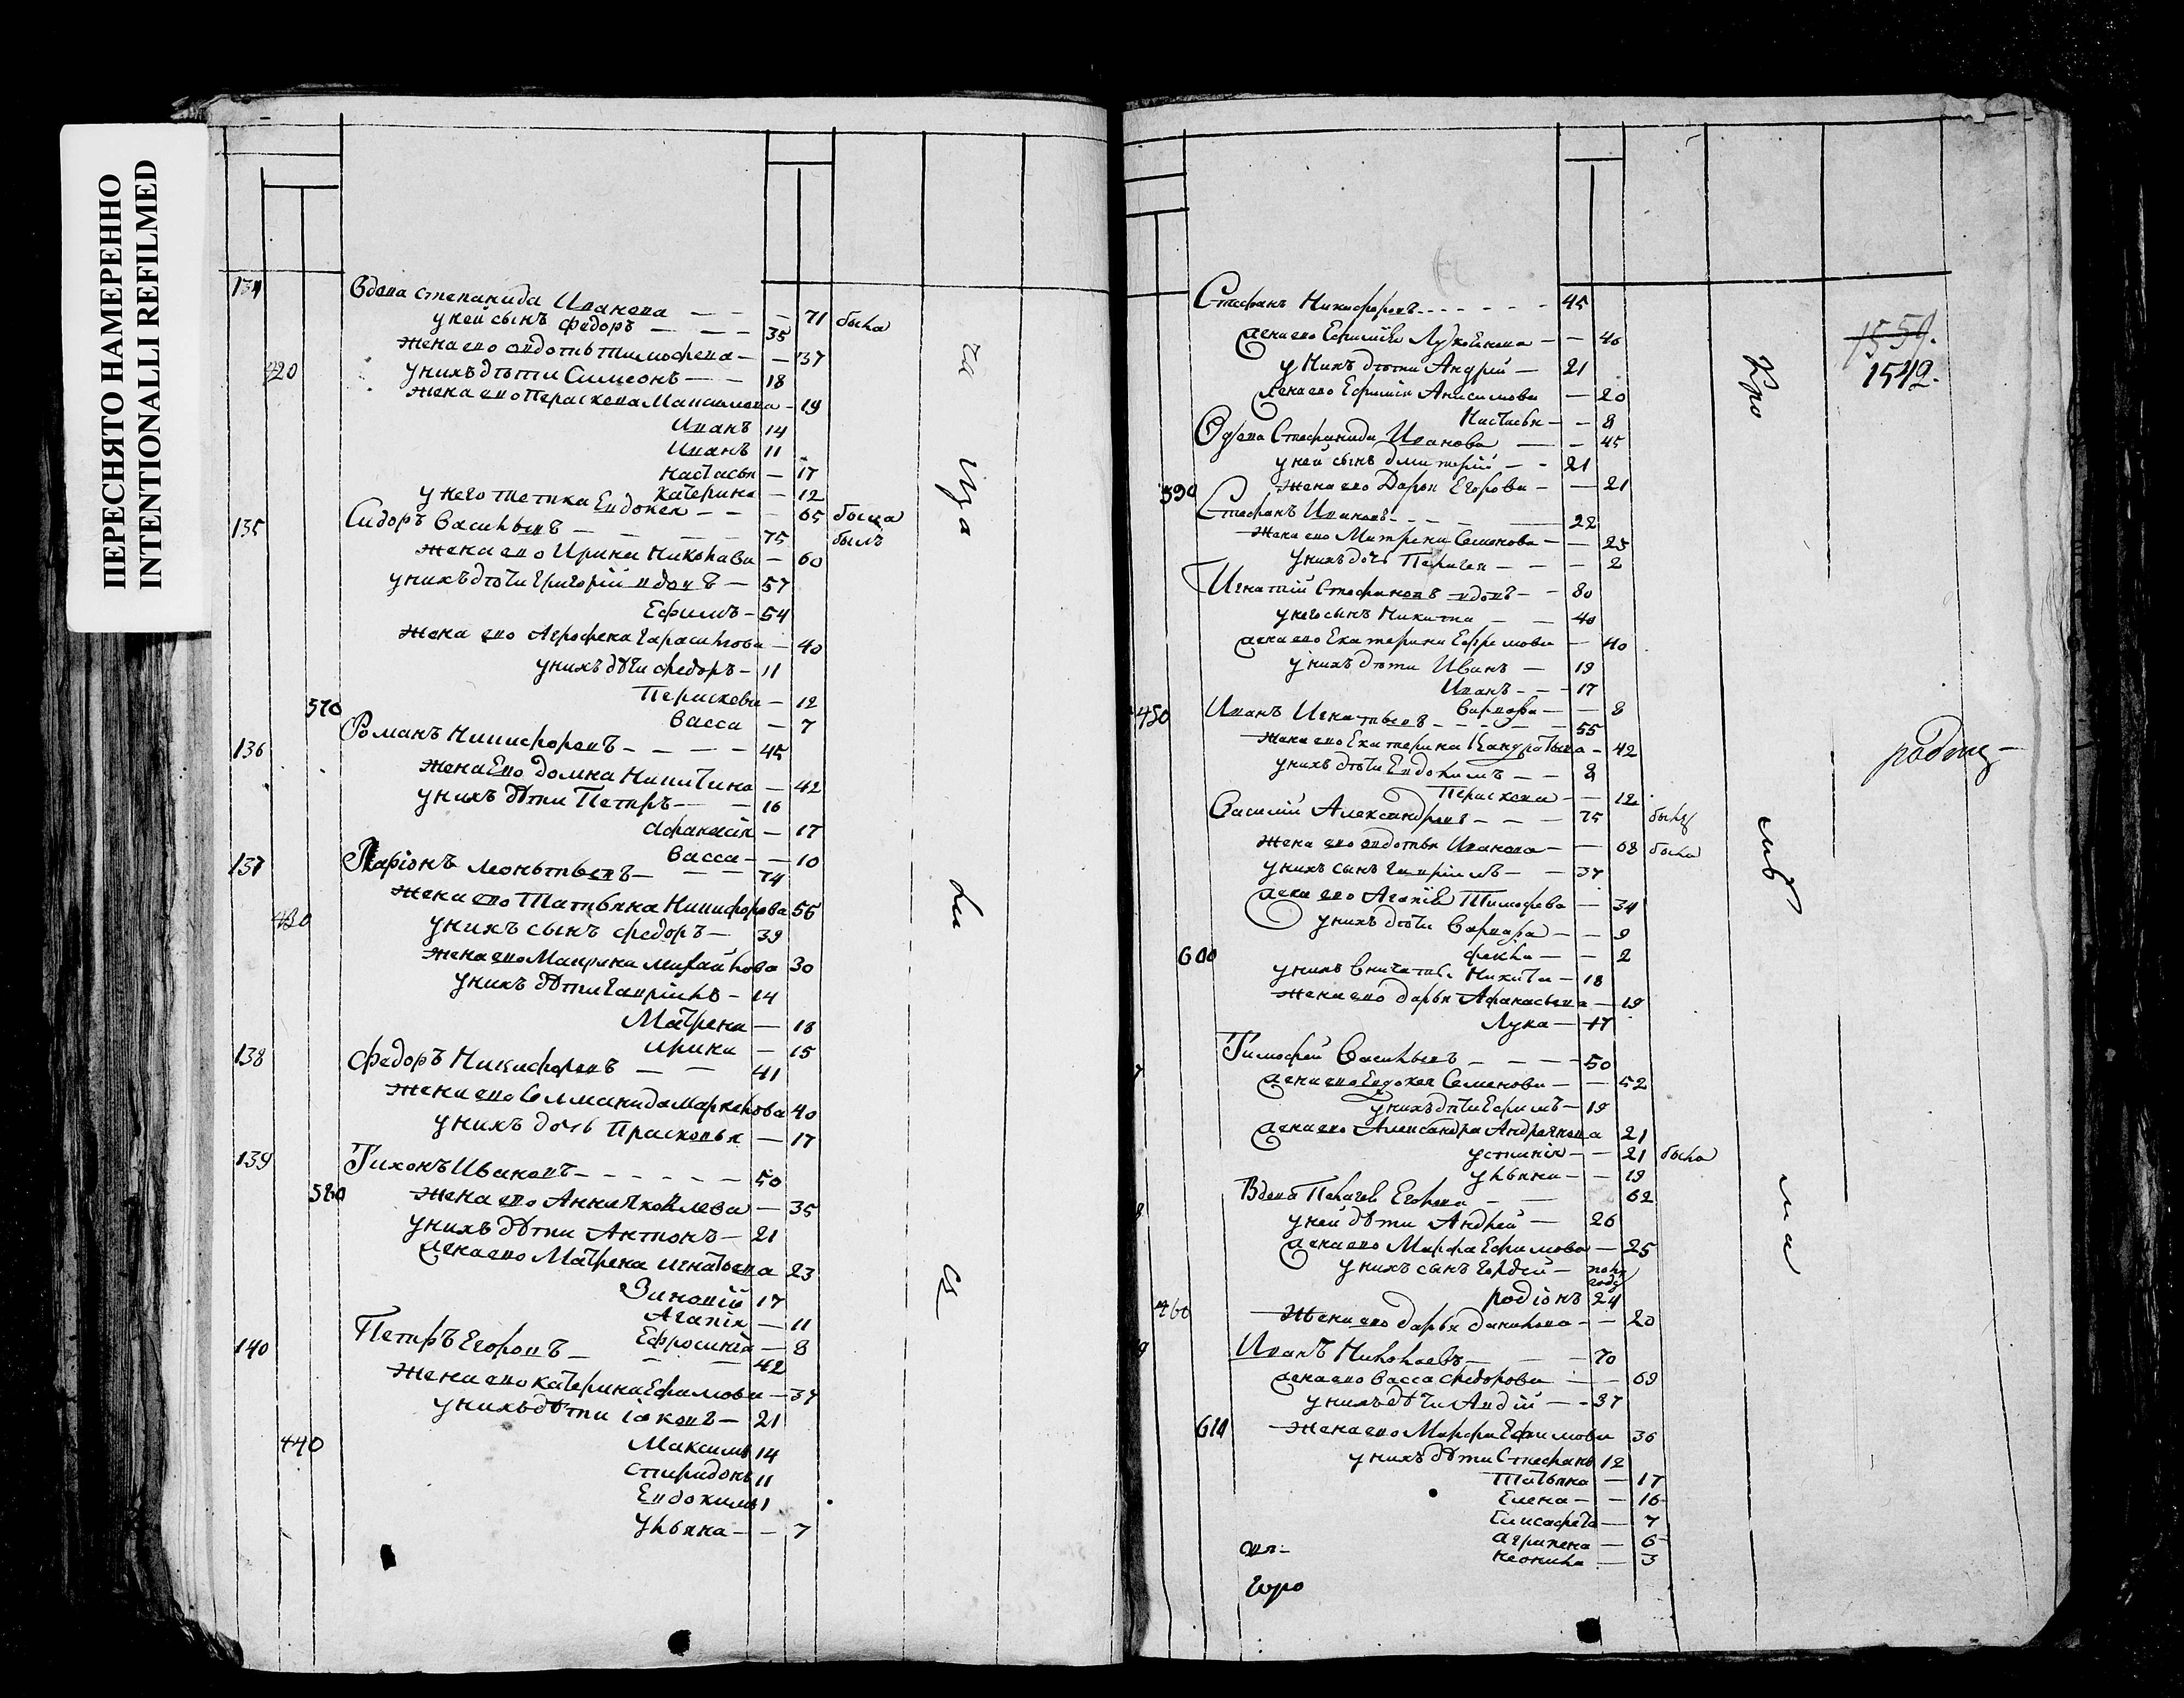 ПЕРЕСНЯТО НАМЕРЕННО
INTENTIONALLI REFILMED
134 Вдова степанида Иванова — — — 71 была
у ней сынъ федоръ — — — 35
жена ево авдотья тимофева — — 37
420 у нихъ дѣти Симеонъ — — 18
жена ево Перасковa Максимова — 19
Иванъ 14
Иванъ 11
настасья — 17
катерина — 12
у него тетка Евдокея — — — 65 была
135 Сидоръ Васильевъ — — — 75 былъ
жена ево Ирина Николава — 60
у нихъ дѣти григорій вдовъ — 57
Ефимъ — 54
жена ево Агрофена гарасимова — 40
у нихъ дѣти федоръ — 11
Перасковa — 12
570 васса — 7
136 Романъ Никифоровъ — — — — 45
жена Ево домна Никитина — 42
у нихъ дѣти Петръ — — 16
Афанасія — 17
васса — — 10
137 Ларіонъ леонтьевъ — — — 74
жена ево Татьяна Никифорова 56
430 у нихъ сынъ федоръ — 39
жена ево Маврена михайлова 30
у нихъ дѣти гаврилъ — 14
Матрена — 18
ирина — 15
138 федоръ Никифоровъ — — 41
жена ево Соломанида Маркелова 40
у нихъ дочь Прасковья — 17
139 Тихонъ Ивановъ — — — — — 50
580 жена ево Анна Яковлева — 35
у нихъ дѣти Антонъ — 21
жена ево Матрена игнатьева 23
Зиновій 17
Агапія — 11
Ефросинія — 8
140 Петръ Егоровъ — — — 42
жена ево катерина Ефимова — 37
у нихъ дѣти іаковъ — 21
440 Максимъ 14
спиридонъ 11
Евдокимъ 1
ульяна — — 7
ца
ли
Стефанъ Никифоровъ — — — — 45
жена ево Ефимія — — 40
у Нихъ дѣти Андрей — 21
жена ево Ефимія Анисимова — 20
Настасья — — 8
Вдова Стефанида Иванова — — 45
у ней сынъ дмитерій — — 21
жена ево Дарья Егорова — — 21
590 Стефанъ Ивановъ — — — 22
жена ево Матрена Семенова — — 23
у нихъ дочь Пелагея — — — 2
Игнатій Стефановъ вдовъ — — 80
у него сынъ Никита — — 40
жена ево Екатерина Ефремова — 40
у нихъ дѣти Иванъ — 19
Иванъ — — 17
варвара — — 8
450 Иванъ Игнатьевъ — — — — 55
жена ево Екатерина Кандратьева — 42
у нихъ дѣти Евдокимъ — — 8
Перасковa — — 12
Василій Александровъ — — — 75 былъ
жена ево авдотья Иванова — — 68 была
у нихъ сынъ гаврилъ — — 37
жена ево Агапія Тимофева — 34
у нихъ дѣти варвара — — 9
600 фекла — — 2
у нихъ Никита — 18
жена ево дарья Афанасьева — 19
Лука — 17
7 Тимофей Васильевъ — — — — 50
жена ево Евдокея Семенова — — 52
у нихъ дѣти Ефимъ — 19
жена ево Александра Андреянова 21
устинія — — 21 была
ульяна — — 19
8 Вдова Пелагея Егорова — — 62
у ней дѣти Андрей — 26
жена ево Марфа Ефимова — 25
у нихъ сынъ гордей — полъ года
родіонъ 24
460 жена ево дарья данилова — — 20
9 Иванъ Николаевъ — — — 70
жена ево васса федорова — — 69
у нихъ дѣти — — 37
610 жена ево Марфа Ефимова 36
у нихъ дѣти Стефанъ 12
татьяна — 17
елена — — 16
елисафета — 7
агрипена — 6
неонила — 3
1559.
1542.